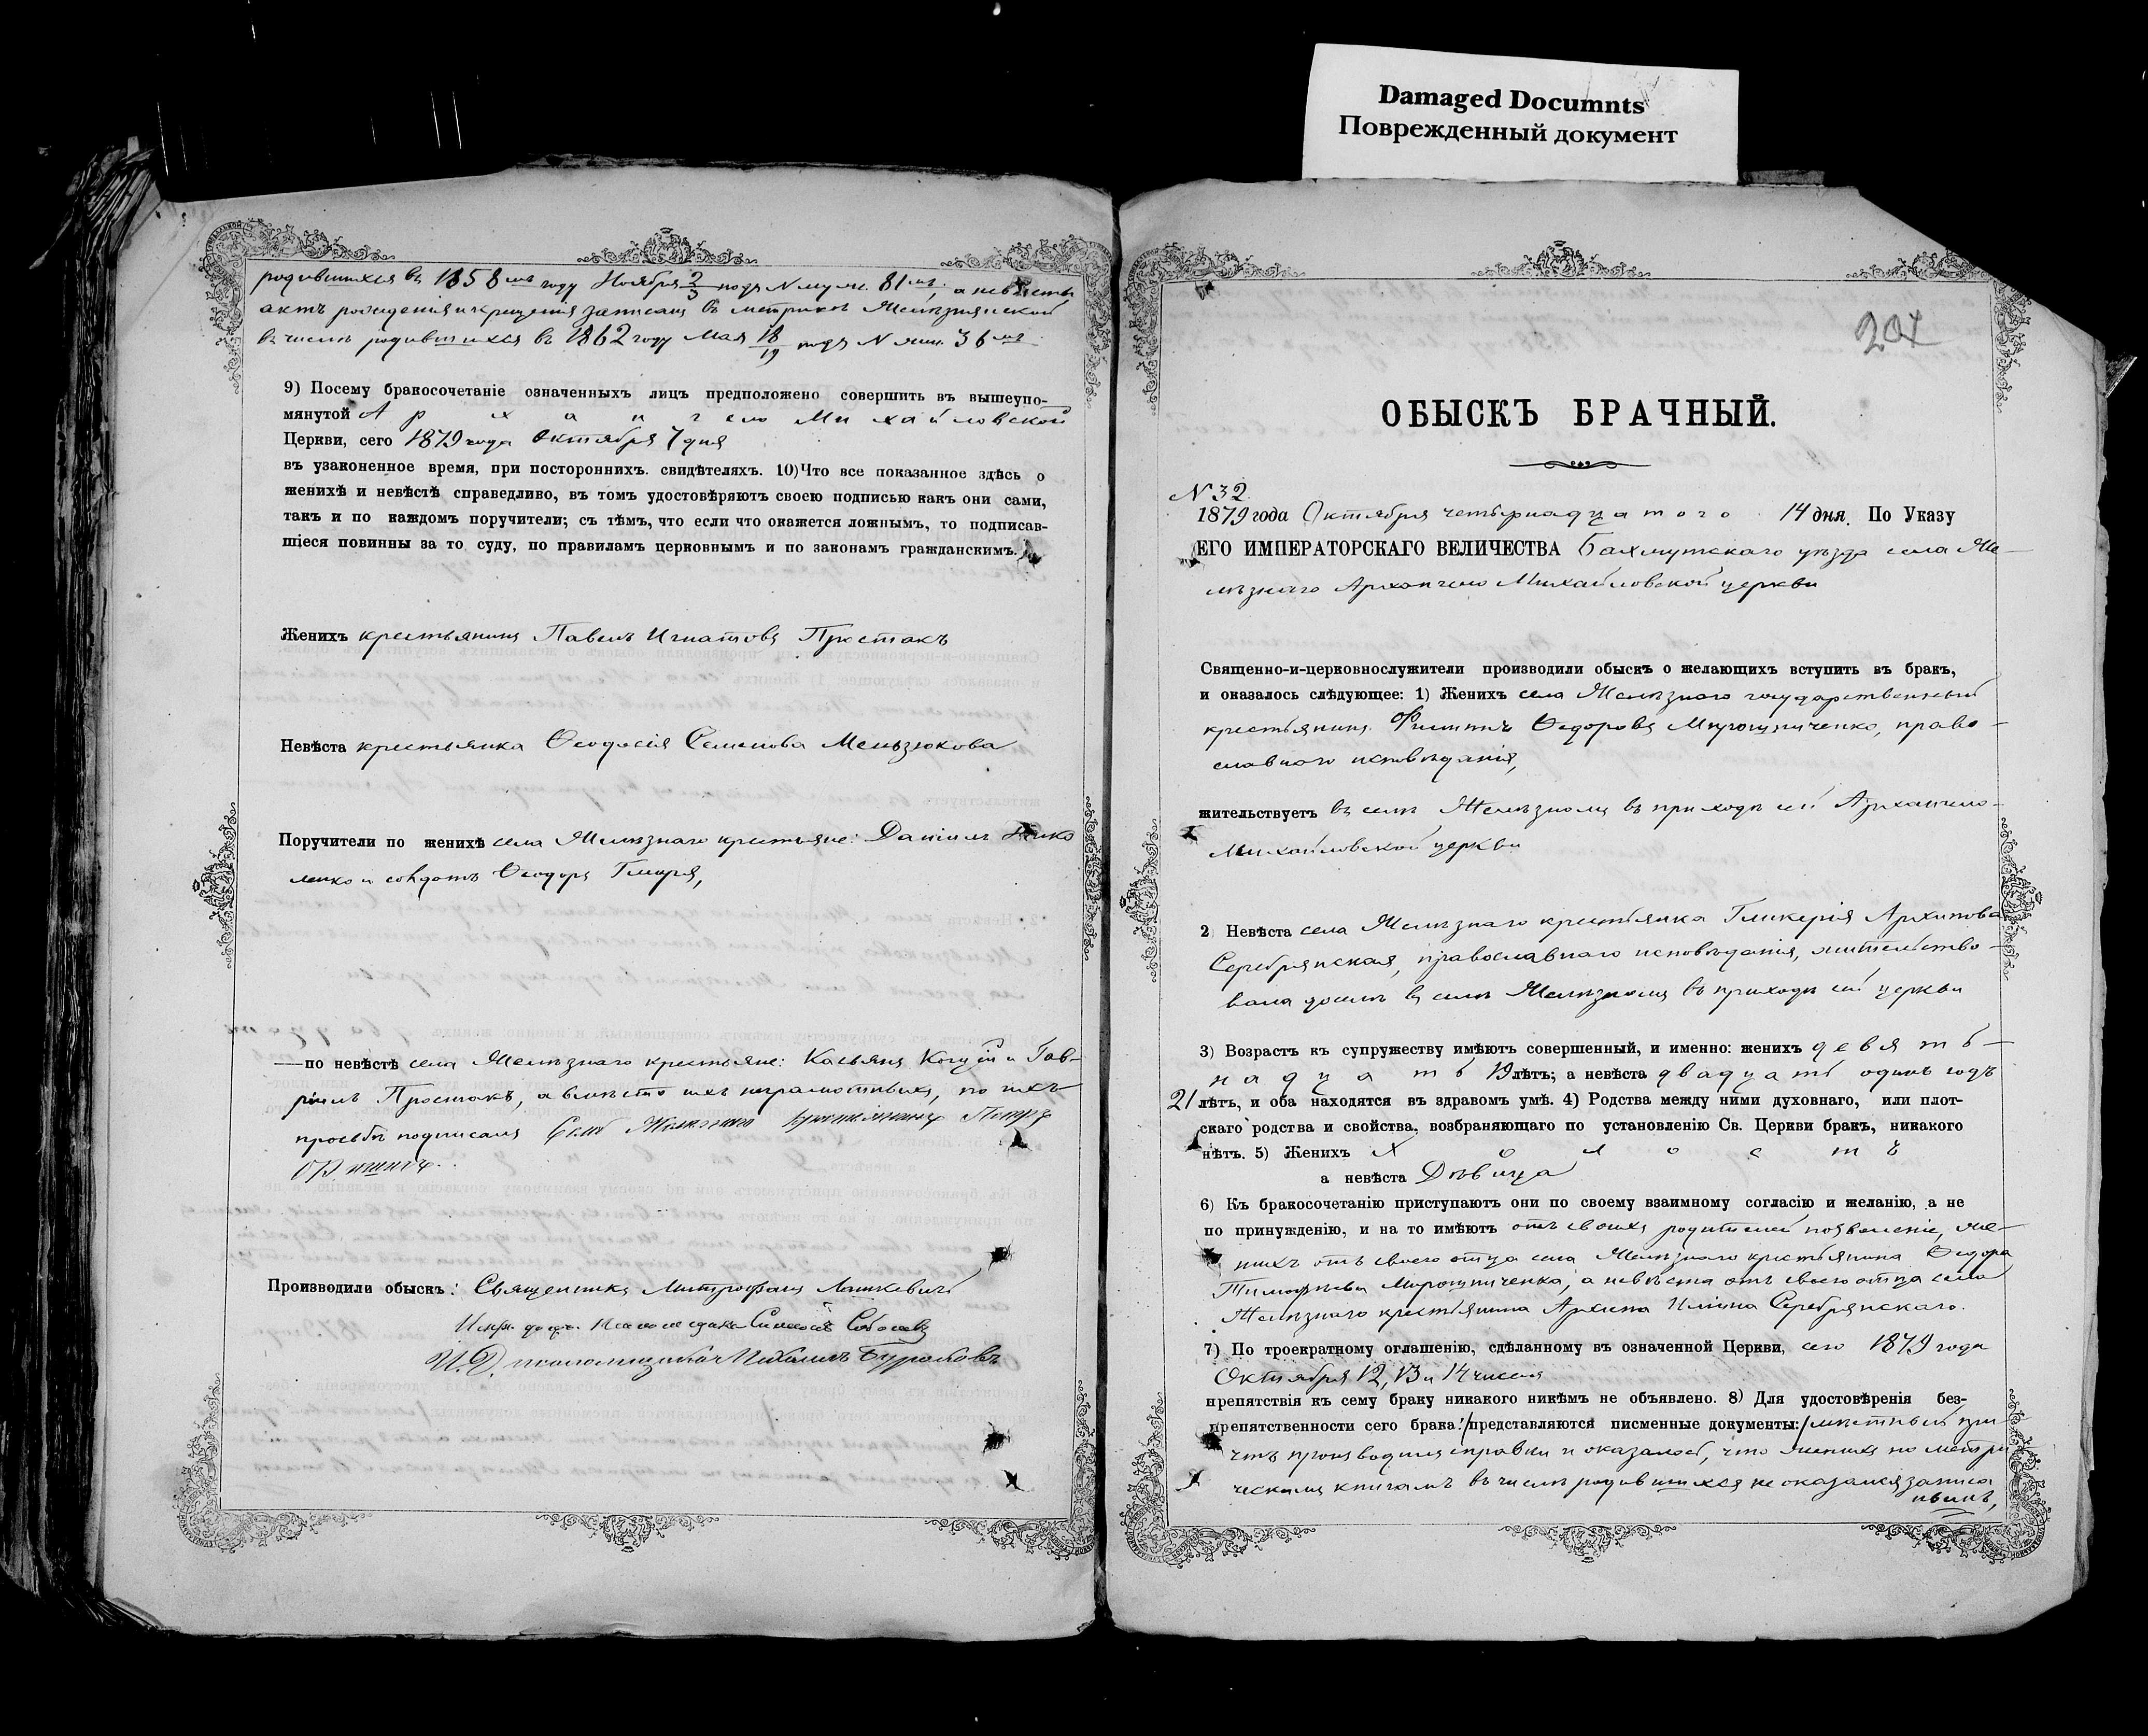 Damaged Documnts
Поврежденный документ
родившихся въ 1858мъ году Ноября 2/3 подъ N муж. 81мъ, а невѣсты
актъ рожденія и крещенія записанъ въ метрикѣ Желѣзнянской
въ числѣ родившихся въ 1862 году Мая 18/19 подъ N жен. 36мъ
9) Посему бракосочетаніе означенныхъ лицъ предположено совершить въ вышеупо-
мянутой Архангело Михайловской
Церкви, сего 1879 года Октября 7 дня
въ узаконенное время, при постороннихъ. свидѣтеляхъ. 10) Что все показанное здѣсь о
женихѣ и невѣстѣ справедливо, въ томъ удостовѣряютъ своею подписью какъ они сами,
такъ и по каждомъ поручители; съ тѣмъ, что если что окажется ложнымъ, то подписав-
шіеся повинны за то суду, по правиламъ церковнымъ и по законамъ гражданскимъ.
Женихъ крестьянинъ Павелъ Игнатовъ Простакъ
Невѣста крестьянка Ѳеодосія Семенова
Поручители по женихѣ села Желѣзнаго крестьяне: Даніилъ
и солдатъ Ѳеодоръ Гмыря,
—по невѣстѣ села Желѣзнаго крестьяне: Касьянъ и Гав-
ріилъ Простакъ, а вмѣсто ихъ неграмотныхъ, по ихъ
просьбѣ подписался Села Желѣзнаго Петръ
Производили обыскъ: Священникъ Митрофанъ Лашкевичъ
Испр. долж. Псаломщика
И. Д. псаломщика Михаилъ
207
ОБЫСКЪ БРАЧНЫЙ.
N 32.
1879 года Октября четырнадцатого 14 дня. По Указу
ЕГО ИМПЕРАТОРСКАГО ВЕЛИЧЕСТВА Бахмутскаго уѣзда села Же-
лѣзнаго Архангело Михайловской церкви
Священно-и-церковнослужители производили обыскъ о желающихъ вступить въ бракъ,
и оказалось слѣдующее: 1) Женихъ села Желѣзнаго государственный
крестьянинъ Филиппъ Ѳедоровъ Мирошниченко, право-
славнаго исповѣданія,
жительствуетъ въ селѣ Желѣзномъ въ приходѣ сей Архангело-
Михайловской церкви
2 Невѣста села Желѣзнаго крестьянка Гликерія Архипова
Серебрянская, православнаго исповѣданія, жительство-
вала доселѣ въ селѣ Желѣзномъ въ приходѣ сей церкви
3) Возрастъ къ супружеству имѣютъ совершенный, и именно: женихъ девять-
надцать 19 лѣтъ; а невѣста двадцать одинъ годъ
21 лѣтъ, и оба находятся въ здравомъ умѣ. 4) Родства между ними духовнаго, или плот-
скаго родства и свойства, возбраняющаго по установленію Св. Церкви бракъ, никакого
нѣтъ. 5) Женихъ Холостъ
а невѣста Дѣвица
6) Къ бракосочетанію приступаютъ они по своему взаимному согласію и желанію, а не
по принужденію, и на то имѣютъ отъ своихъ родителей позволеніе, же-
нихъ отъ своего отца села Желѣзнаго крестьянина Ѳедора
Тимофѣева Мирошниченка, а невѣста отъ своего отца села
Желѣзнаго крестьянина Архипа Ильина Серебрянскаго.
7) По троекратному оглашенію, сдѣланному въ означенной Церкви, сего 1879 года
Октября 12, 13 и 14 чиселъ
препятствія къ сему браку никакого никѣмъ не объявлено. 8) Для удостовѣренія без-
препятственности сего брака: /представляются писменные документы:/ мѣстный при-
чтъ производилъ справки и оказалось, что женихъ по метри-
ческимъ книгамъ въ числѣ родившихся не оказался записа
ннымъ,